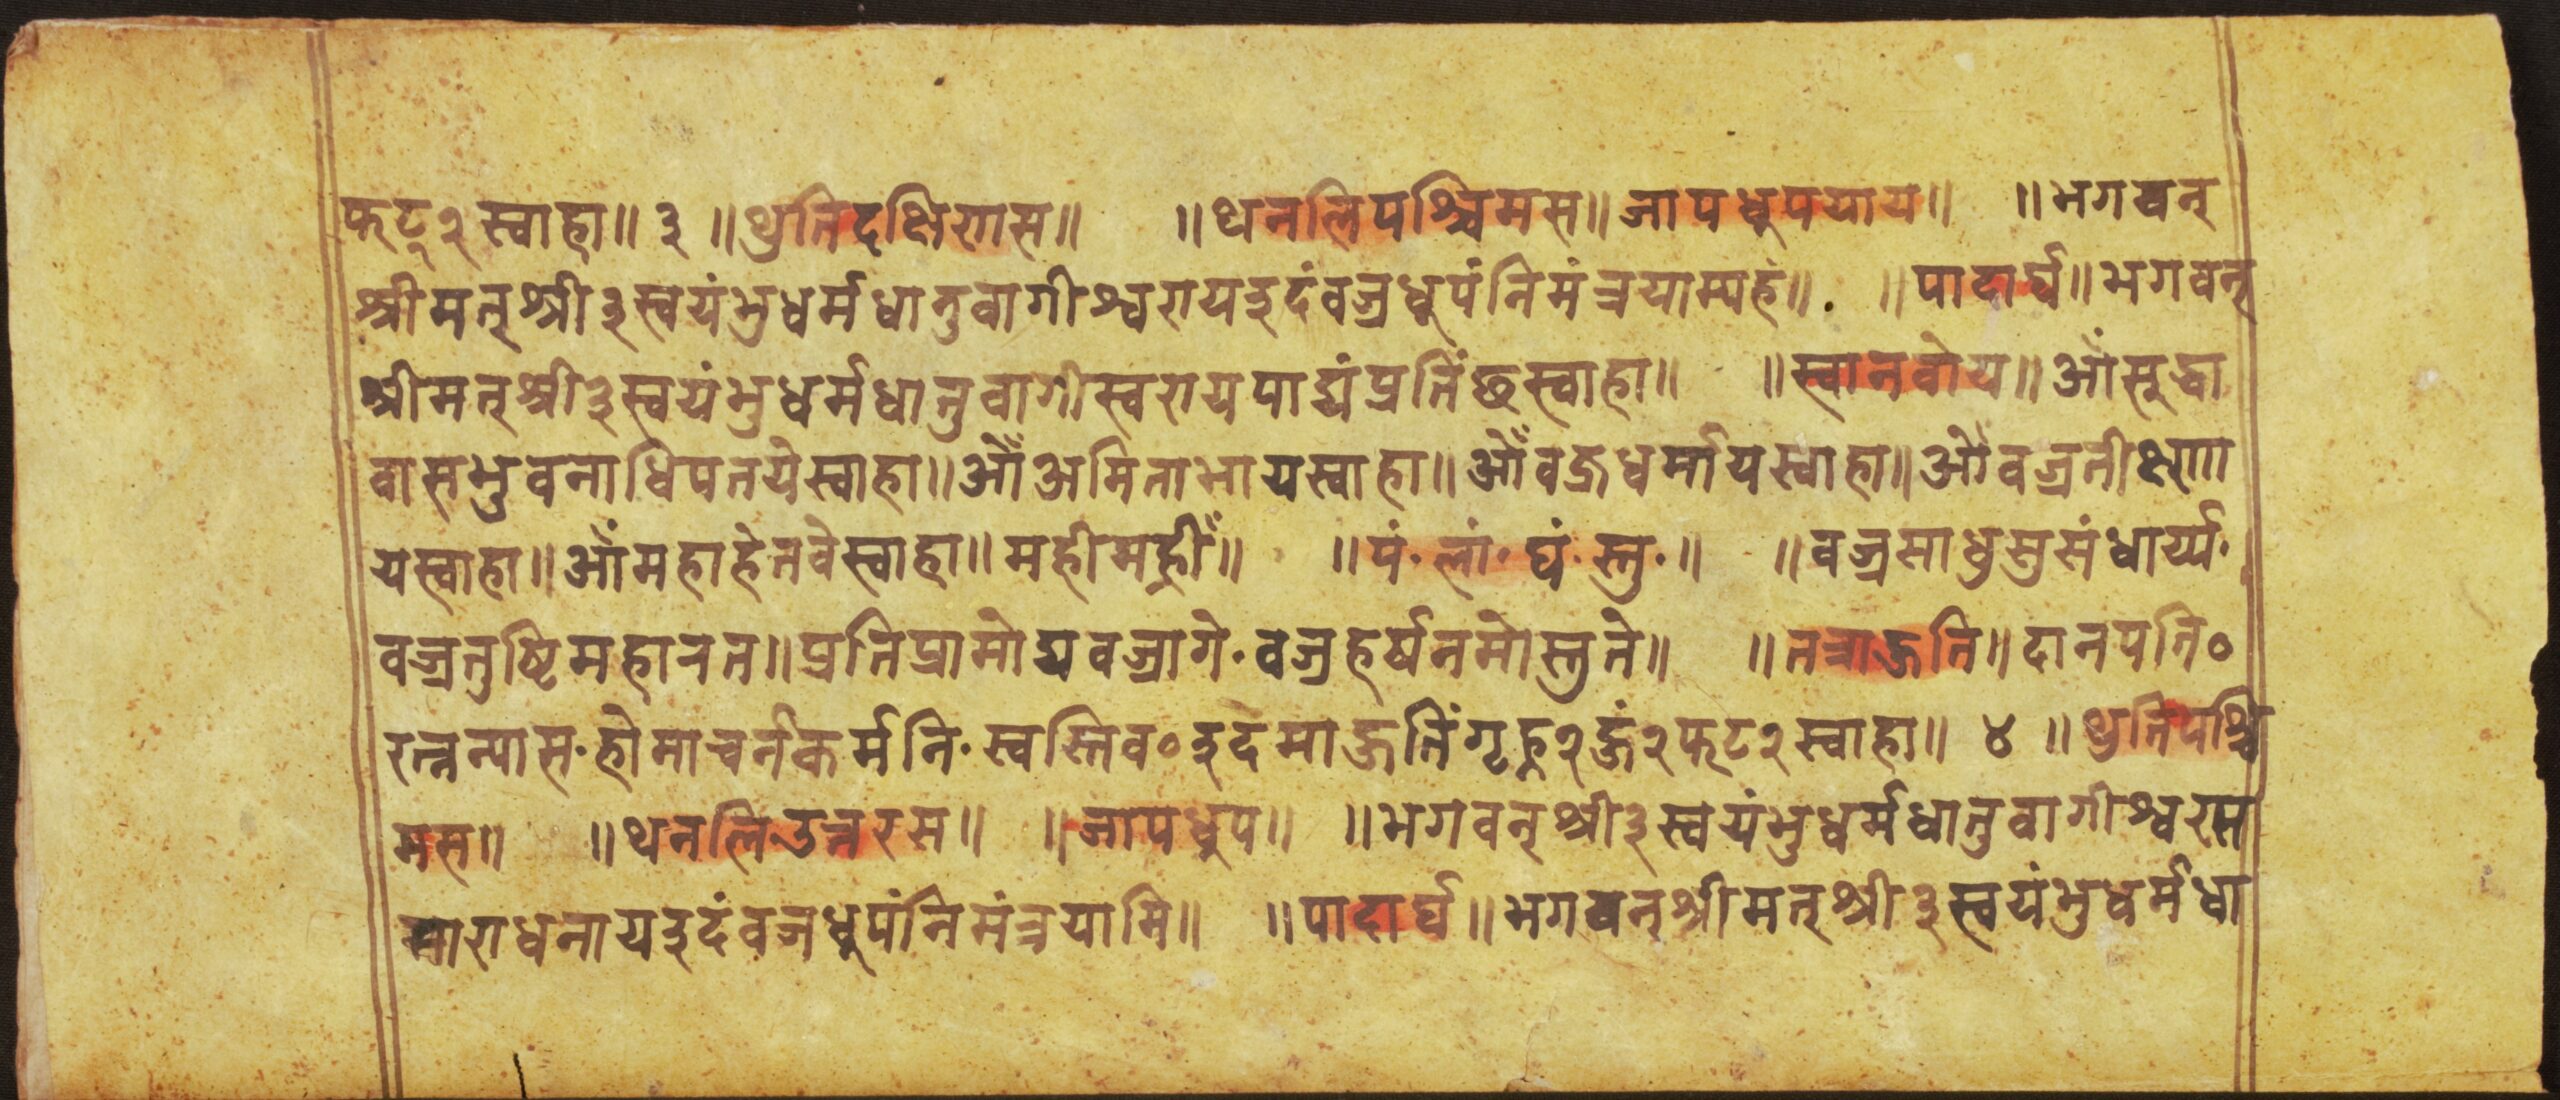 फट्२स्वाहा॥ ३ ॥थुतिदक्षिणस॥ ॥थनलिपश्चिमस॥जापधुपयाय॥ ॥भगवन्
श्रीमत्श्री३स्वयंभुधर्मधातुवागीश्वरायइदंवज्रधूपंनिमंत्रयाम्यहं॥ ॥पादार्घ॥भगवन्
श्रीमत्श्री३स्वयंभुधर्मधातुवागीस्वरायपाद्यंप्रतिंछस्वाहा॥ ॥स्वानवोय॥ओंसूद्धा
वासभुवनाधिपतयेस्वाहा॥ओँअमिताभायस्वाहा॥ओँवज्रधर्मायस्वाहा॥ओंवज्रतीक्ष्णा
यस्वाहा॥ओंमहाहेतवेस्वाहा॥मही॥ ॥पं·लां·घं·स्तु·॥ ॥वज्रसाधुसुसंधार्य्य·
वज्रतुष्टिमहारत॥प्रतिप्रामोद्यवज्रागे·वज्रहर्षनमोस्तुते॥ ॥तत्राहुति॥दानपति०
रत्नन्यास·होमाचर्नकर्मनि·स्वस्तिव०इदमाहुतिंगृह्न२हुं२फट२स्वाहा॥ ४ ॥थुतिपश्चि
मस॥ ॥थनलिउत्तरस॥ ॥जापधुप॥ ॥भगवन्श्री३स्वयंभुधर्मधातुवागीश्वरस
माराधनायइदंवज्रधूपंनिमंत्रयामि॥ ॥पादार्घ॥भगवन्श्रीमत्श्री३स्वयंभुधर्मधा